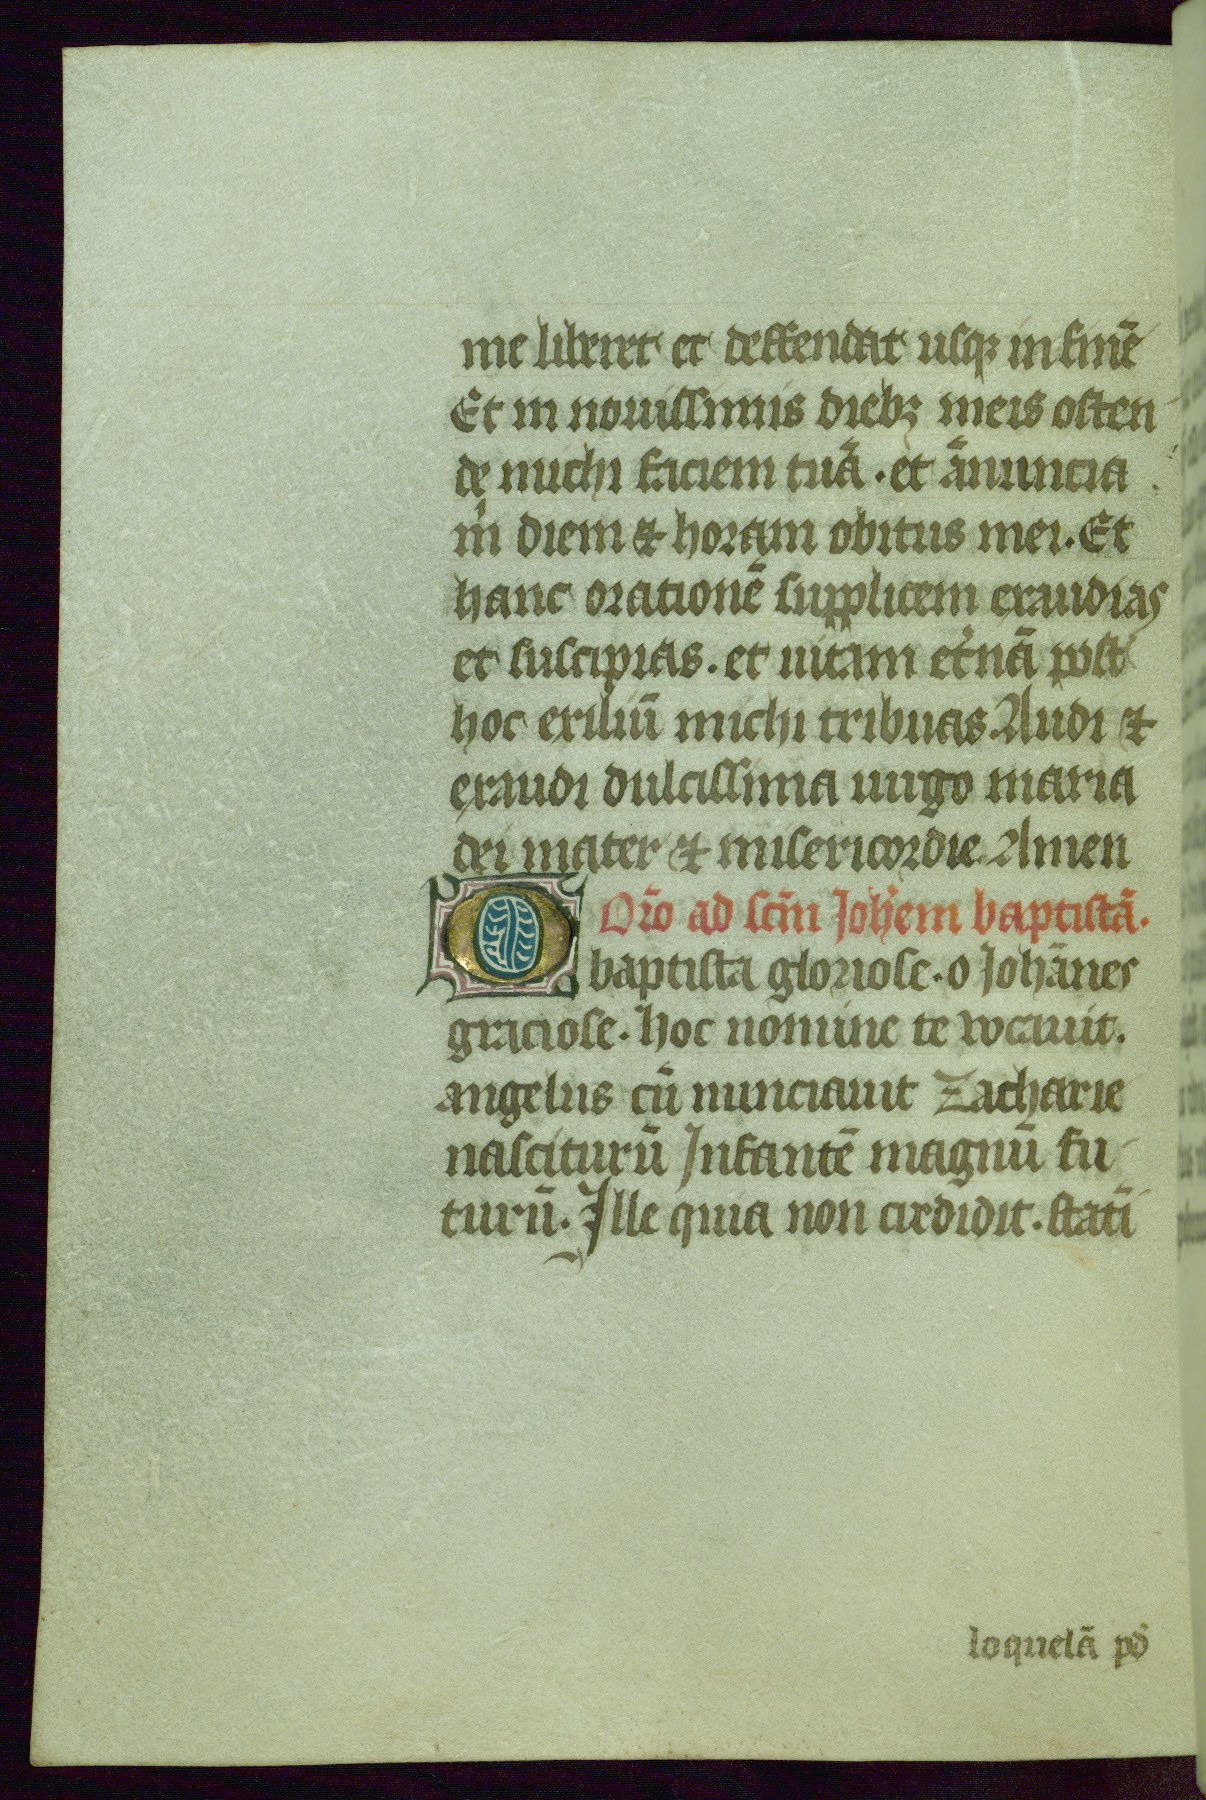 me liberet et deffendat usqꝫ in finē
Et in nouissimis diebꝫ meis osten
de michi faciem tuā. et ānuncia
m̍ diem & horam obitus mei. Et
hanc orationē supplicem exaudias
et suscipias. et uitam et̓nā post
hoc exiliū michi tribuas. Audi &
exaudi dulcissima uirgo maria
dei mater & misericordie. Amen
Or̄o ad sctm̄ Joh̓em baptistā.
O baptista gloriose. o Johānes
graciose. hoc nomine te vocauit.
angelus cū nunciauit Zacharie
nasciturū Infantē magnū fu
turū. Ille quia non credidit. statī
loquelā pd̓